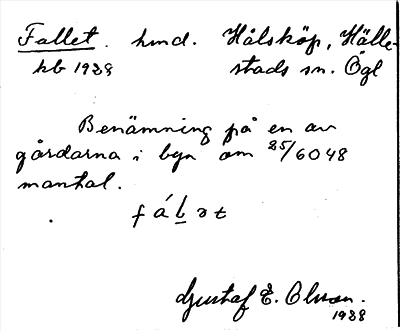 Fallet. hmd. Hålsköp, Hälle-
hb 1938 stads sn. Ögl
Benämning på en av
gårdarna i byn om 25/6048
mantal.
fálət
Gustaf E. Olsson.
1938